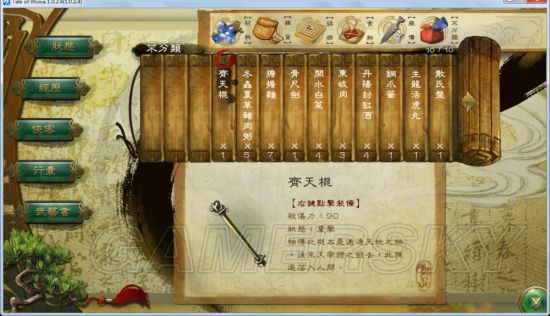 Tale of Wuxia 1.0.2.4(1.0.2.4)
不分類
食物
裝備
不分類
10 / 10
狀態
經歷
俠客
行囊
武藝書
齊天棍
×1
冬蟲夏草豬肉粥
×5
擔擔麵
×7
骨尺劍
×1
開水白菜
×4
東坡肉
×3
丹陽封缸酒
×4
×1
生龍活虎丸
×1
散氏盤
×1
齊天棍
【右鍵點擊裝備】
殺傷力：90
狀態：重擊
相傳此棍本是連通天地之物
，後來天帝將之毀去，此棍
遂落入人間。
GAMERSKY